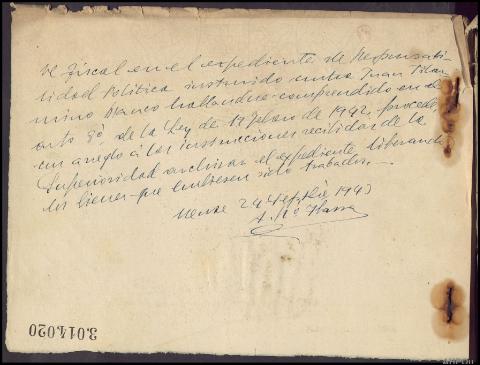 El Fiscal en el expediente de Responsabi-
lidad Política instruido contra Juan Pilar
mino Blanco hallandose comprendido en el
arto 8º de la Ley de 19 febrero de 1942, procede
con arreglo á las instrucciones recibidas de la
Superioridad archivar el expediente liberando
los bienes que hubiesen sido trabados.—
Orense 24 Septbre 1943
3.014.020